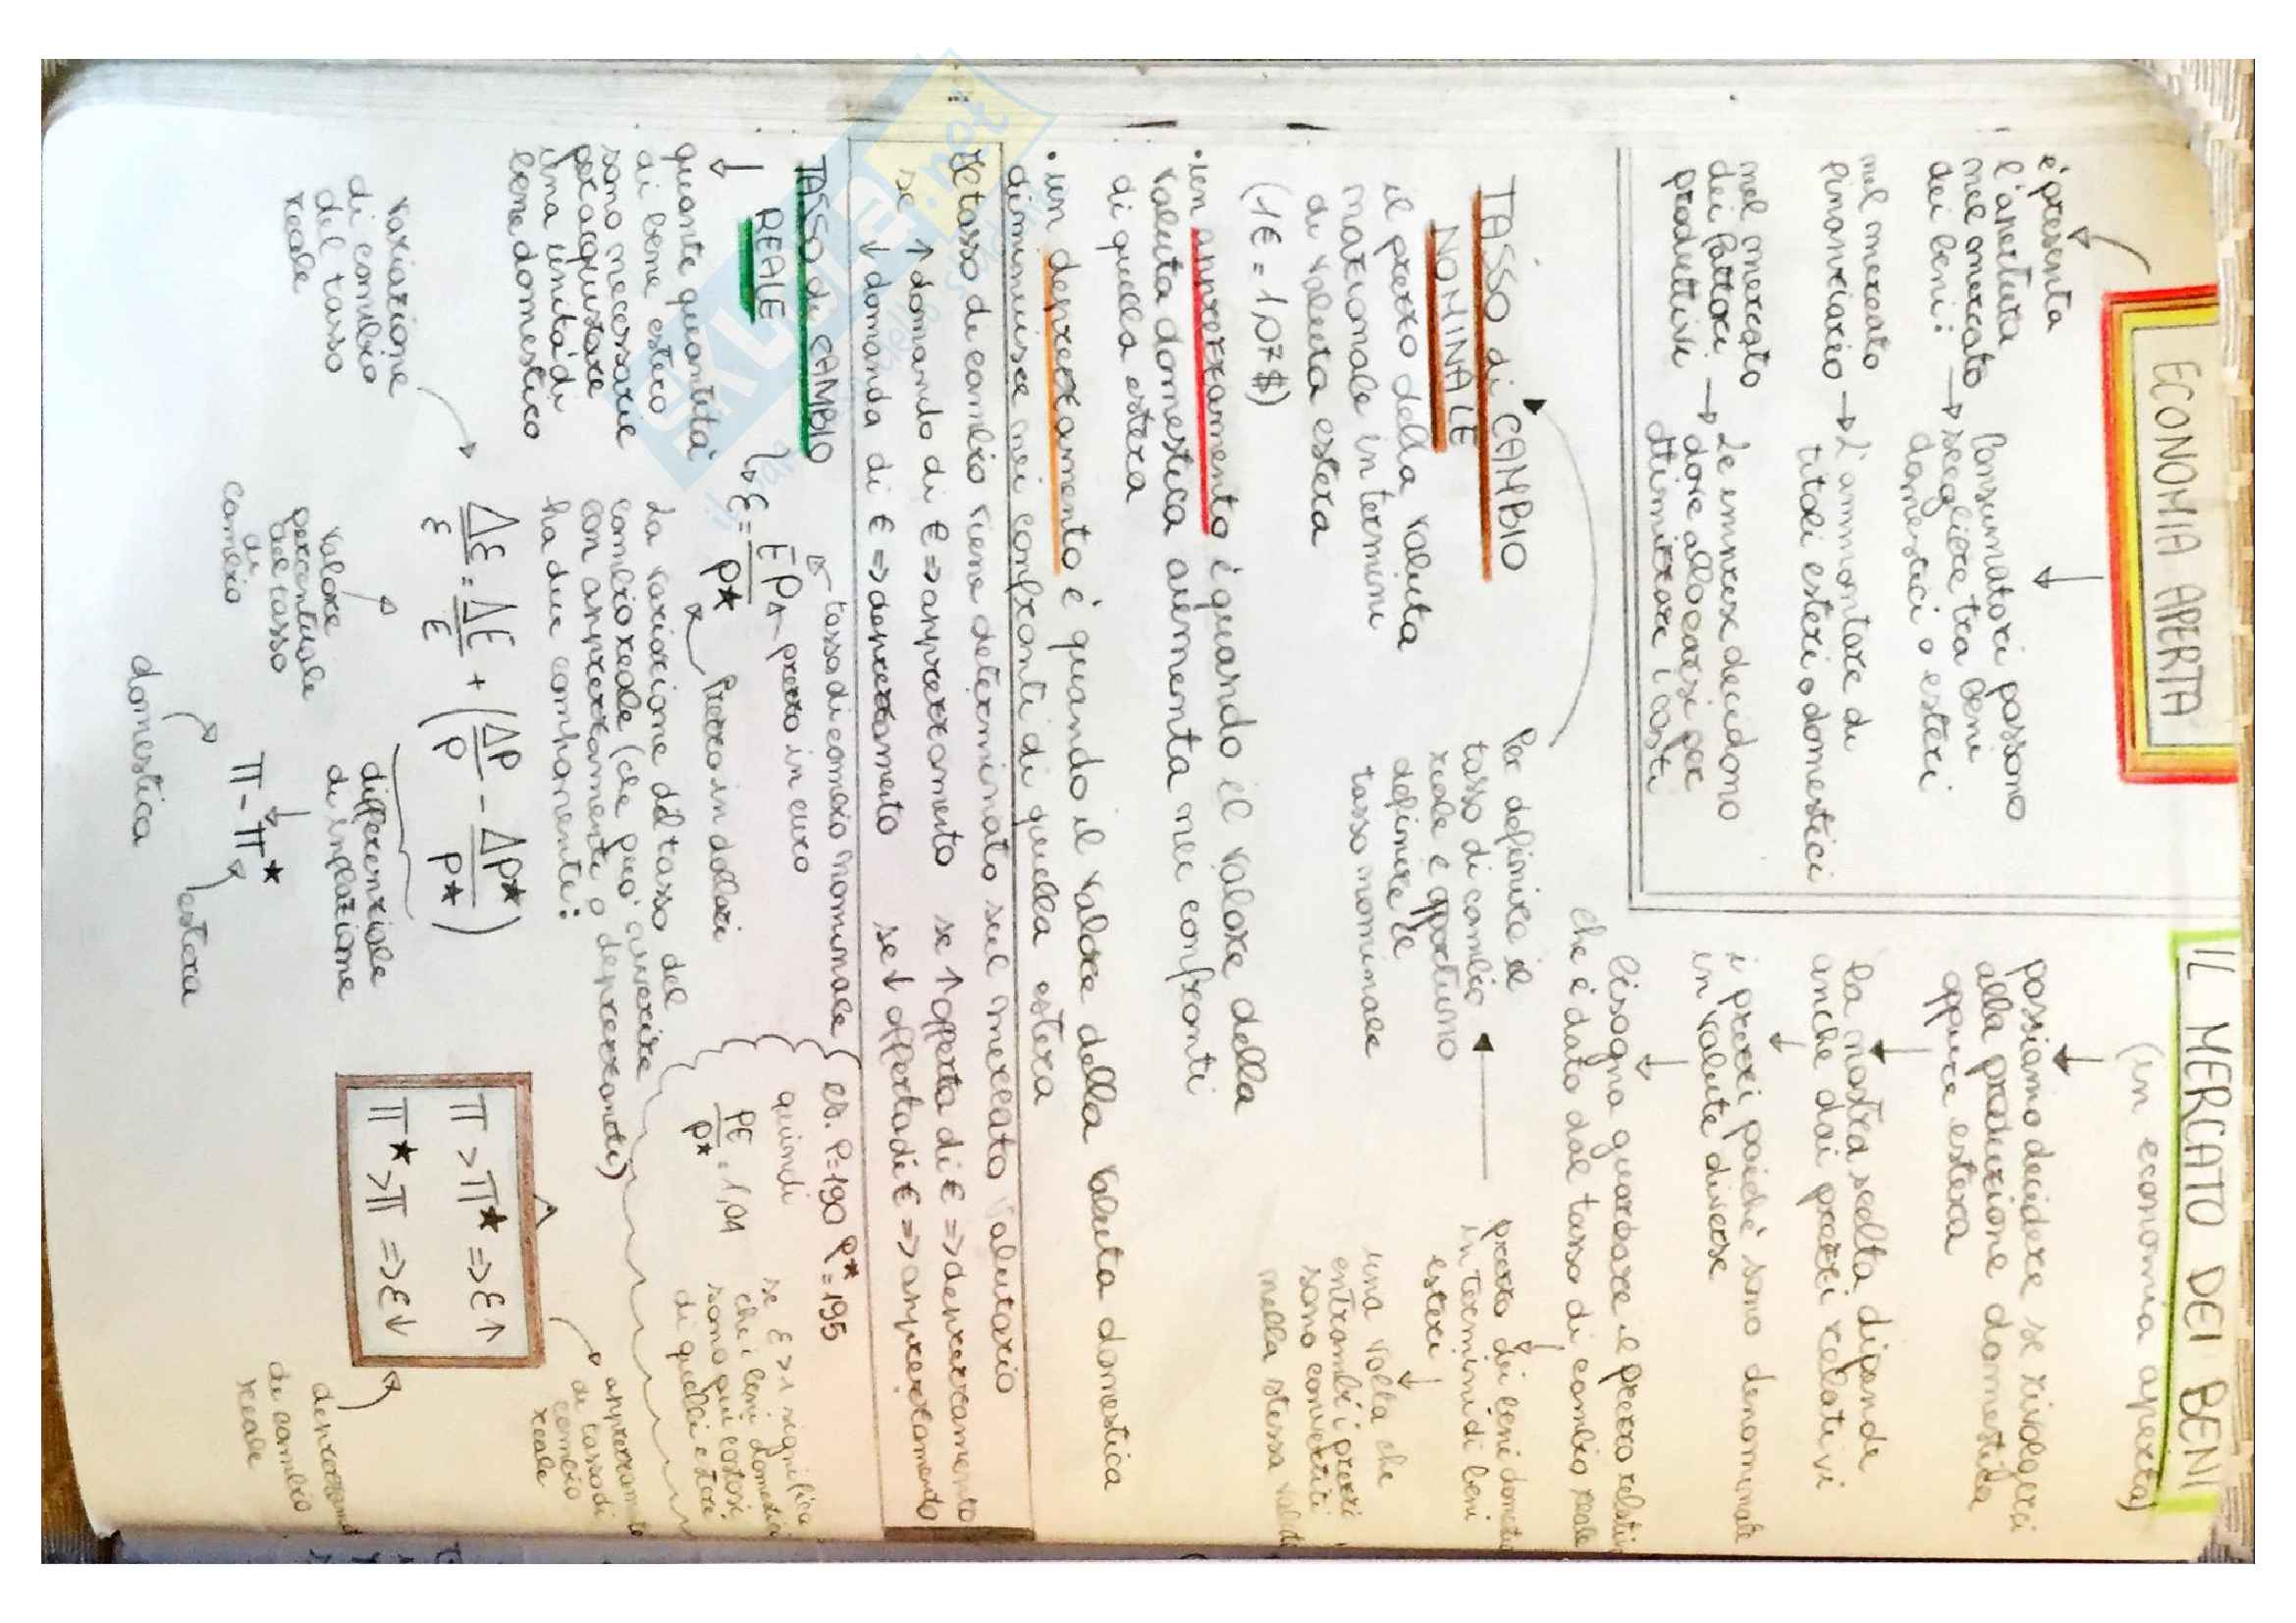 ECONOMIA APERTA
è presenta
l'apertura
nel mercato
dei beni:
Consumatori possono
→ scegliere tra beni
domestici o esteri
nel mercato
finanziario → L'ammontare di
titoli esteri o domestici
nel mercato
dei fattori →
produttivi
Le imprese decidono
dove allocarsi per
ottimizzare i costi
IL MERCATO DEI BENI
(in economia aperta)
possiamo decidere se rivolgerci
alla produzione domestica
oppure estera
la nostra scelta dipende
anche dai prezzi relativi
i prezzi poiché sono denominate
in valute diverse
bisogna guardare il prezzo relati
che è dato dal tasso di cambio reale
TASSO di CAMBIO
NOMINALE
il prezzo della valuta
nazionale in termini
di valuta estera
(1€ = 1,07$)
Per definire il
tasso di cambio
reale è opportuno
definire il
tasso nominale
prezzo dei beni domestic
in termini di beni
esteri
una volta che
entrambi i prezzi
sono convertiti
nella stessa valut
• un apprezzamento è quando il valore della
valuta domestica aumenta nei confronti
di quella estera
• un deprezzamento è quando il valore della valuta domestica
diminuisce nei confronti di quella estera
Il tasso di cambio viene determinato sul mercato valutario
se ↑ domanda di € => apprezzamento se ↑ offerta di € => deprezzamento
↓ domanda di € => deprezzamento se ↓ offerta di € => apprezzamento
TASSO di CAMBIO
REALE
quante quantità
di bene estero
sono necessarie
per acquistare
una unità di
bene domestico
tasso di cambio nominale
ε = E P / P★
prezzo in euro
Prezzo in dollari
es. P=190 P★=195
quindi
PE / P★ = 1,04
se ε>1 significa
che i beni domestici
sono più costosi
di quelli esteri
La variazione del tasso del
cambio reale (che può avvenire
con apprezzamenti o deprezzamenti)
ha due componenti:
variazione
di cambio
del tasso
reale
Δε/ε = ΔE/E + (ΔP/P - ΔP★/P★)
valore
percentuale
del tasso
di
cambio
differenziale
di inflazione
π - π★
domestica
estera
π > π★ => ε↑
π★ > π => ε↓
apprezzamento
di tasso di
cambio
reale
deprezzam
di cambio
reale